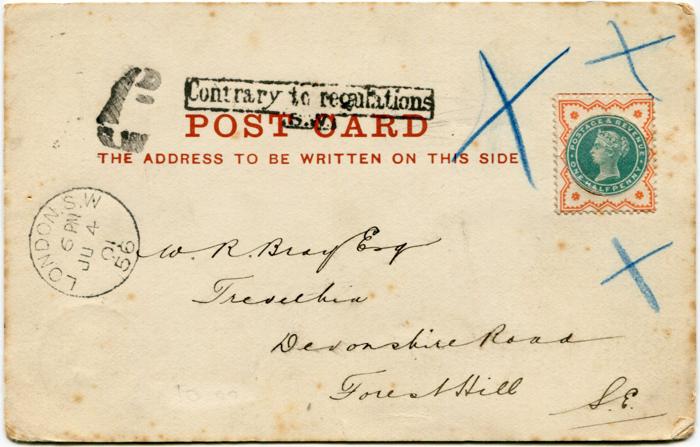 Contrary to regulations
S.W.
POST CARD
THE ADDRESS TO BE WRITTEN ON THIS SIDE
POSTAGE & REVENUE
ONE HALFPENNY
LONDON. S.W
6 PM
JU 4
01
56
W. R. Bray Esq
Devonshire Road
Forest Hill
S.E.